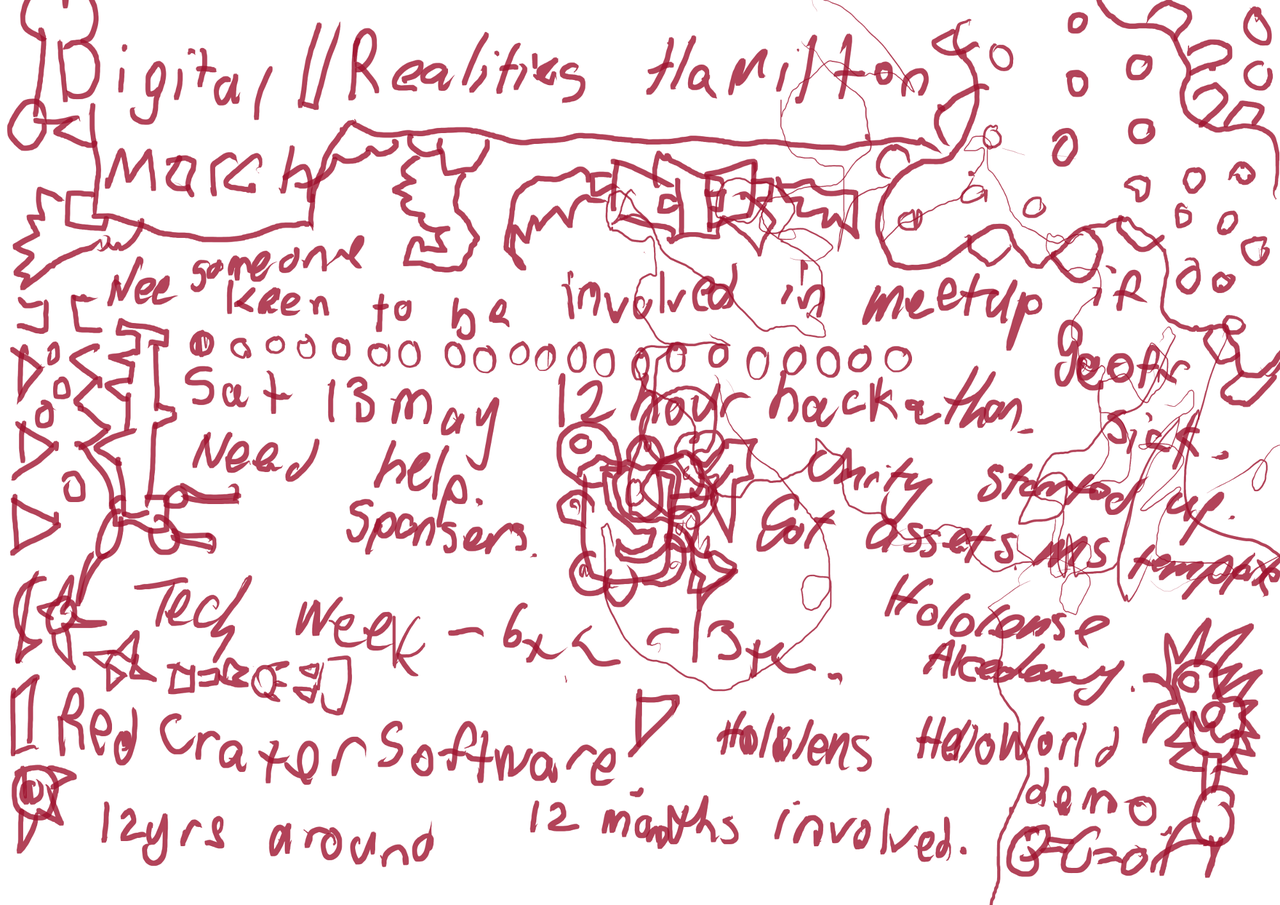 Digital Realities Hamilton
March
Nee someone keen to be involved in meetup if
Geoff
sick.
Sat 13 may 12 hour hackathon.
Need help.
Sponsers.
Unity started up.
Got assets MS
Hololense
Tech Week - 6
Red Crater Software.
Hololens HelloWorld
demo
12yrs around 12 months involved.